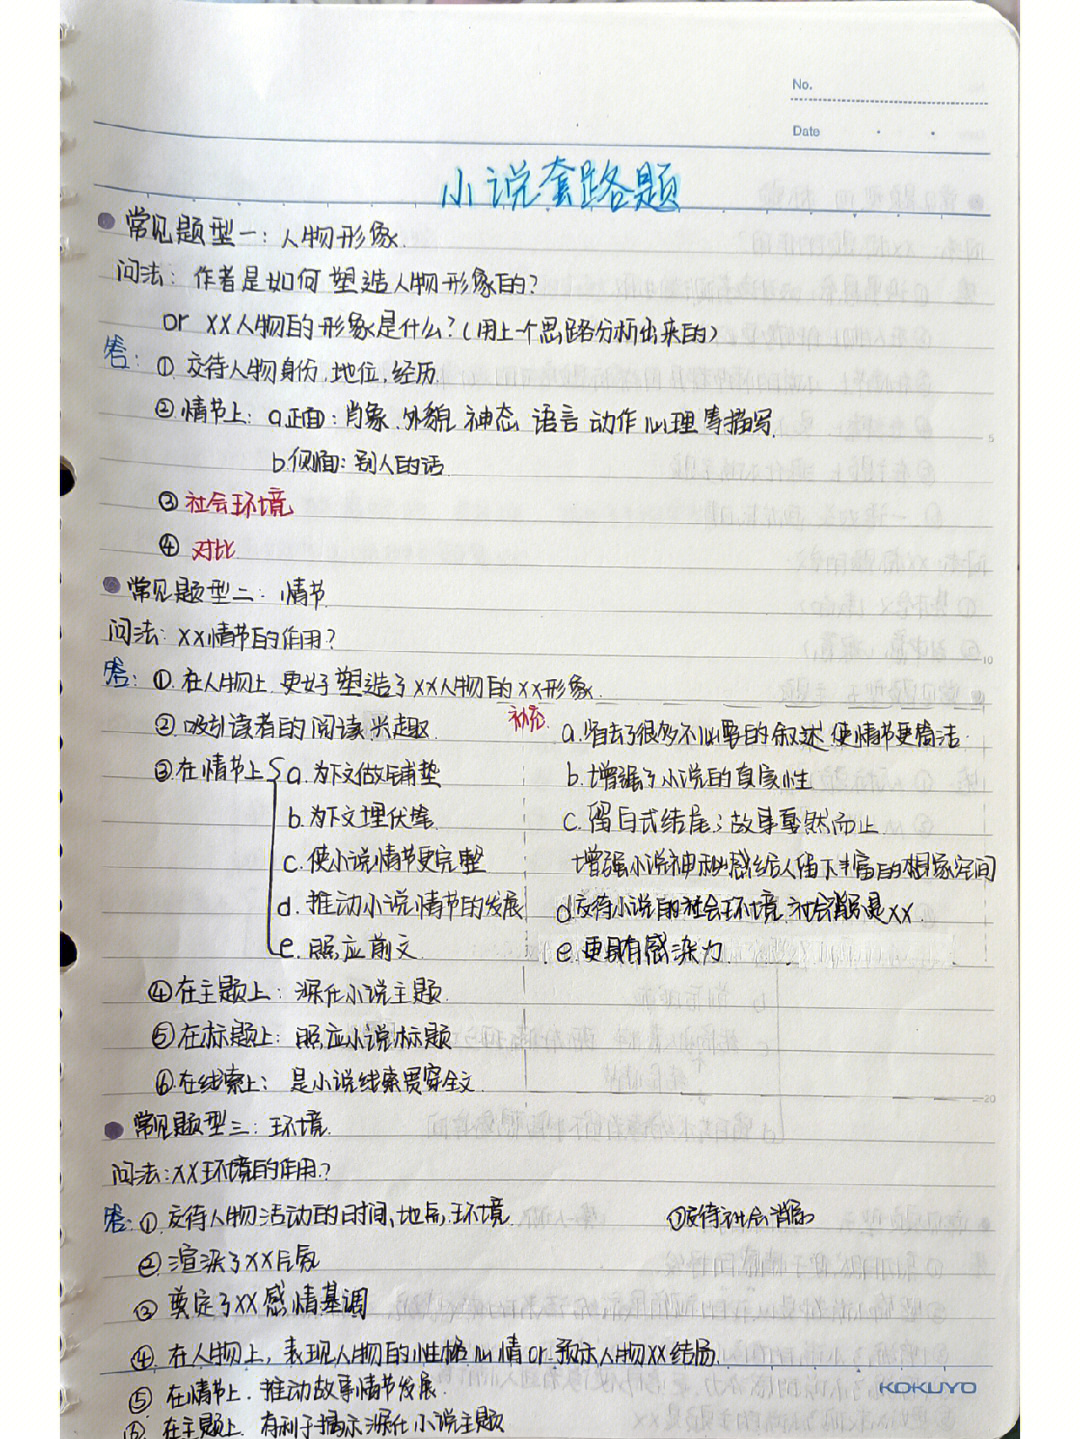 No.
Date
小说套路题
常见题型一：人物形象.
问法：作者是如何塑造人物形象的？
or XX人物的形象是什么？（用上一个思路分析出来的）
答：① 交待人物身份，地位，经历.
② 情节上：a正面：肖象、外貌 神态 语言 动作 心理 等描写.
b侧面：别人的话
③ 社会环境
④ 对比
常见题型二：情节.
问法：XX情节的作用？
答：①.在人物上 更好塑造了XX人物的XX形象.
② 吸引读者的阅读兴趣.
③在情节上 a.为下文做铺垫
b.为下文埋伏笔.
c.使小说情节更完整
d.推动小说情节的发展
e.照应前文.
补充.
a.省去了很多不必要的叙述 使情节更简洁.
b.增强了小说的真实性
c.留白式结尾；故事戛然而止.
增强小说神秘感给人留下丰富的想象空间
d交待小说的社会环境.
e.更具有感染力.
④在主题上：深化小说主题.
⑤在标题上：照应小说标题
⑥在线索上：是小说线索贯穿全文.
常见题型三：环境.
问法：XX环境的作用？
答：① 交待人物活动的时间，地点，环境.
①交待社会背景
② 渲染了XX气氛
③ 奠定了XX感情基调
④ 在人物上，表现人物的性格心情or.预示人物XX结局.
⑤ 在情节上.推动故事情节发展.
⑥ 在主题上.有利于揭示深化小说主题
KOKUYO
5
10
20